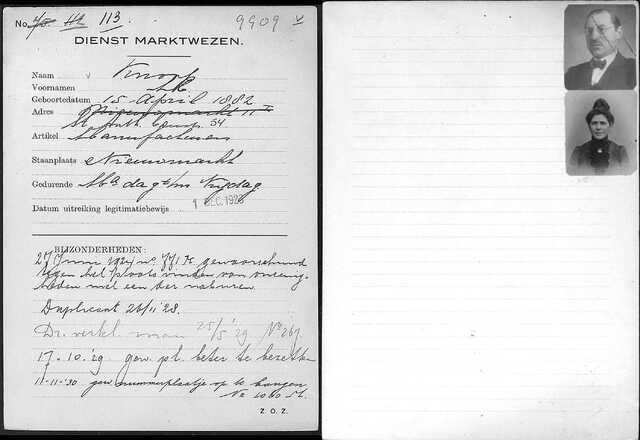 No. 113 9909 v
DIENST MARKTWEZEN.
Naam v Knopf
Voornamen
Geboortedatum 15 April 1882
Adres
54
Artikel Manufacturen
Staanplaats Nieuwmarkt
Gedurende Md dag t/m Vrijdag
Datum uitreiking legitimatiebewijs 1 DEC. 1926
BIJZONDERHEDEN:
gewaarschuwd
tegen het plaats vinden van oneenig-
heden met een der naturen.
Duplicaat 26/11 28.
Dr. verkl. man 25/5 '29 No 267
17.10.'29 gew. pl. beter te bezetten
11-11-'30 gew. nummerplaatje op te hangen
No 1000 St.
Z. O. Z.